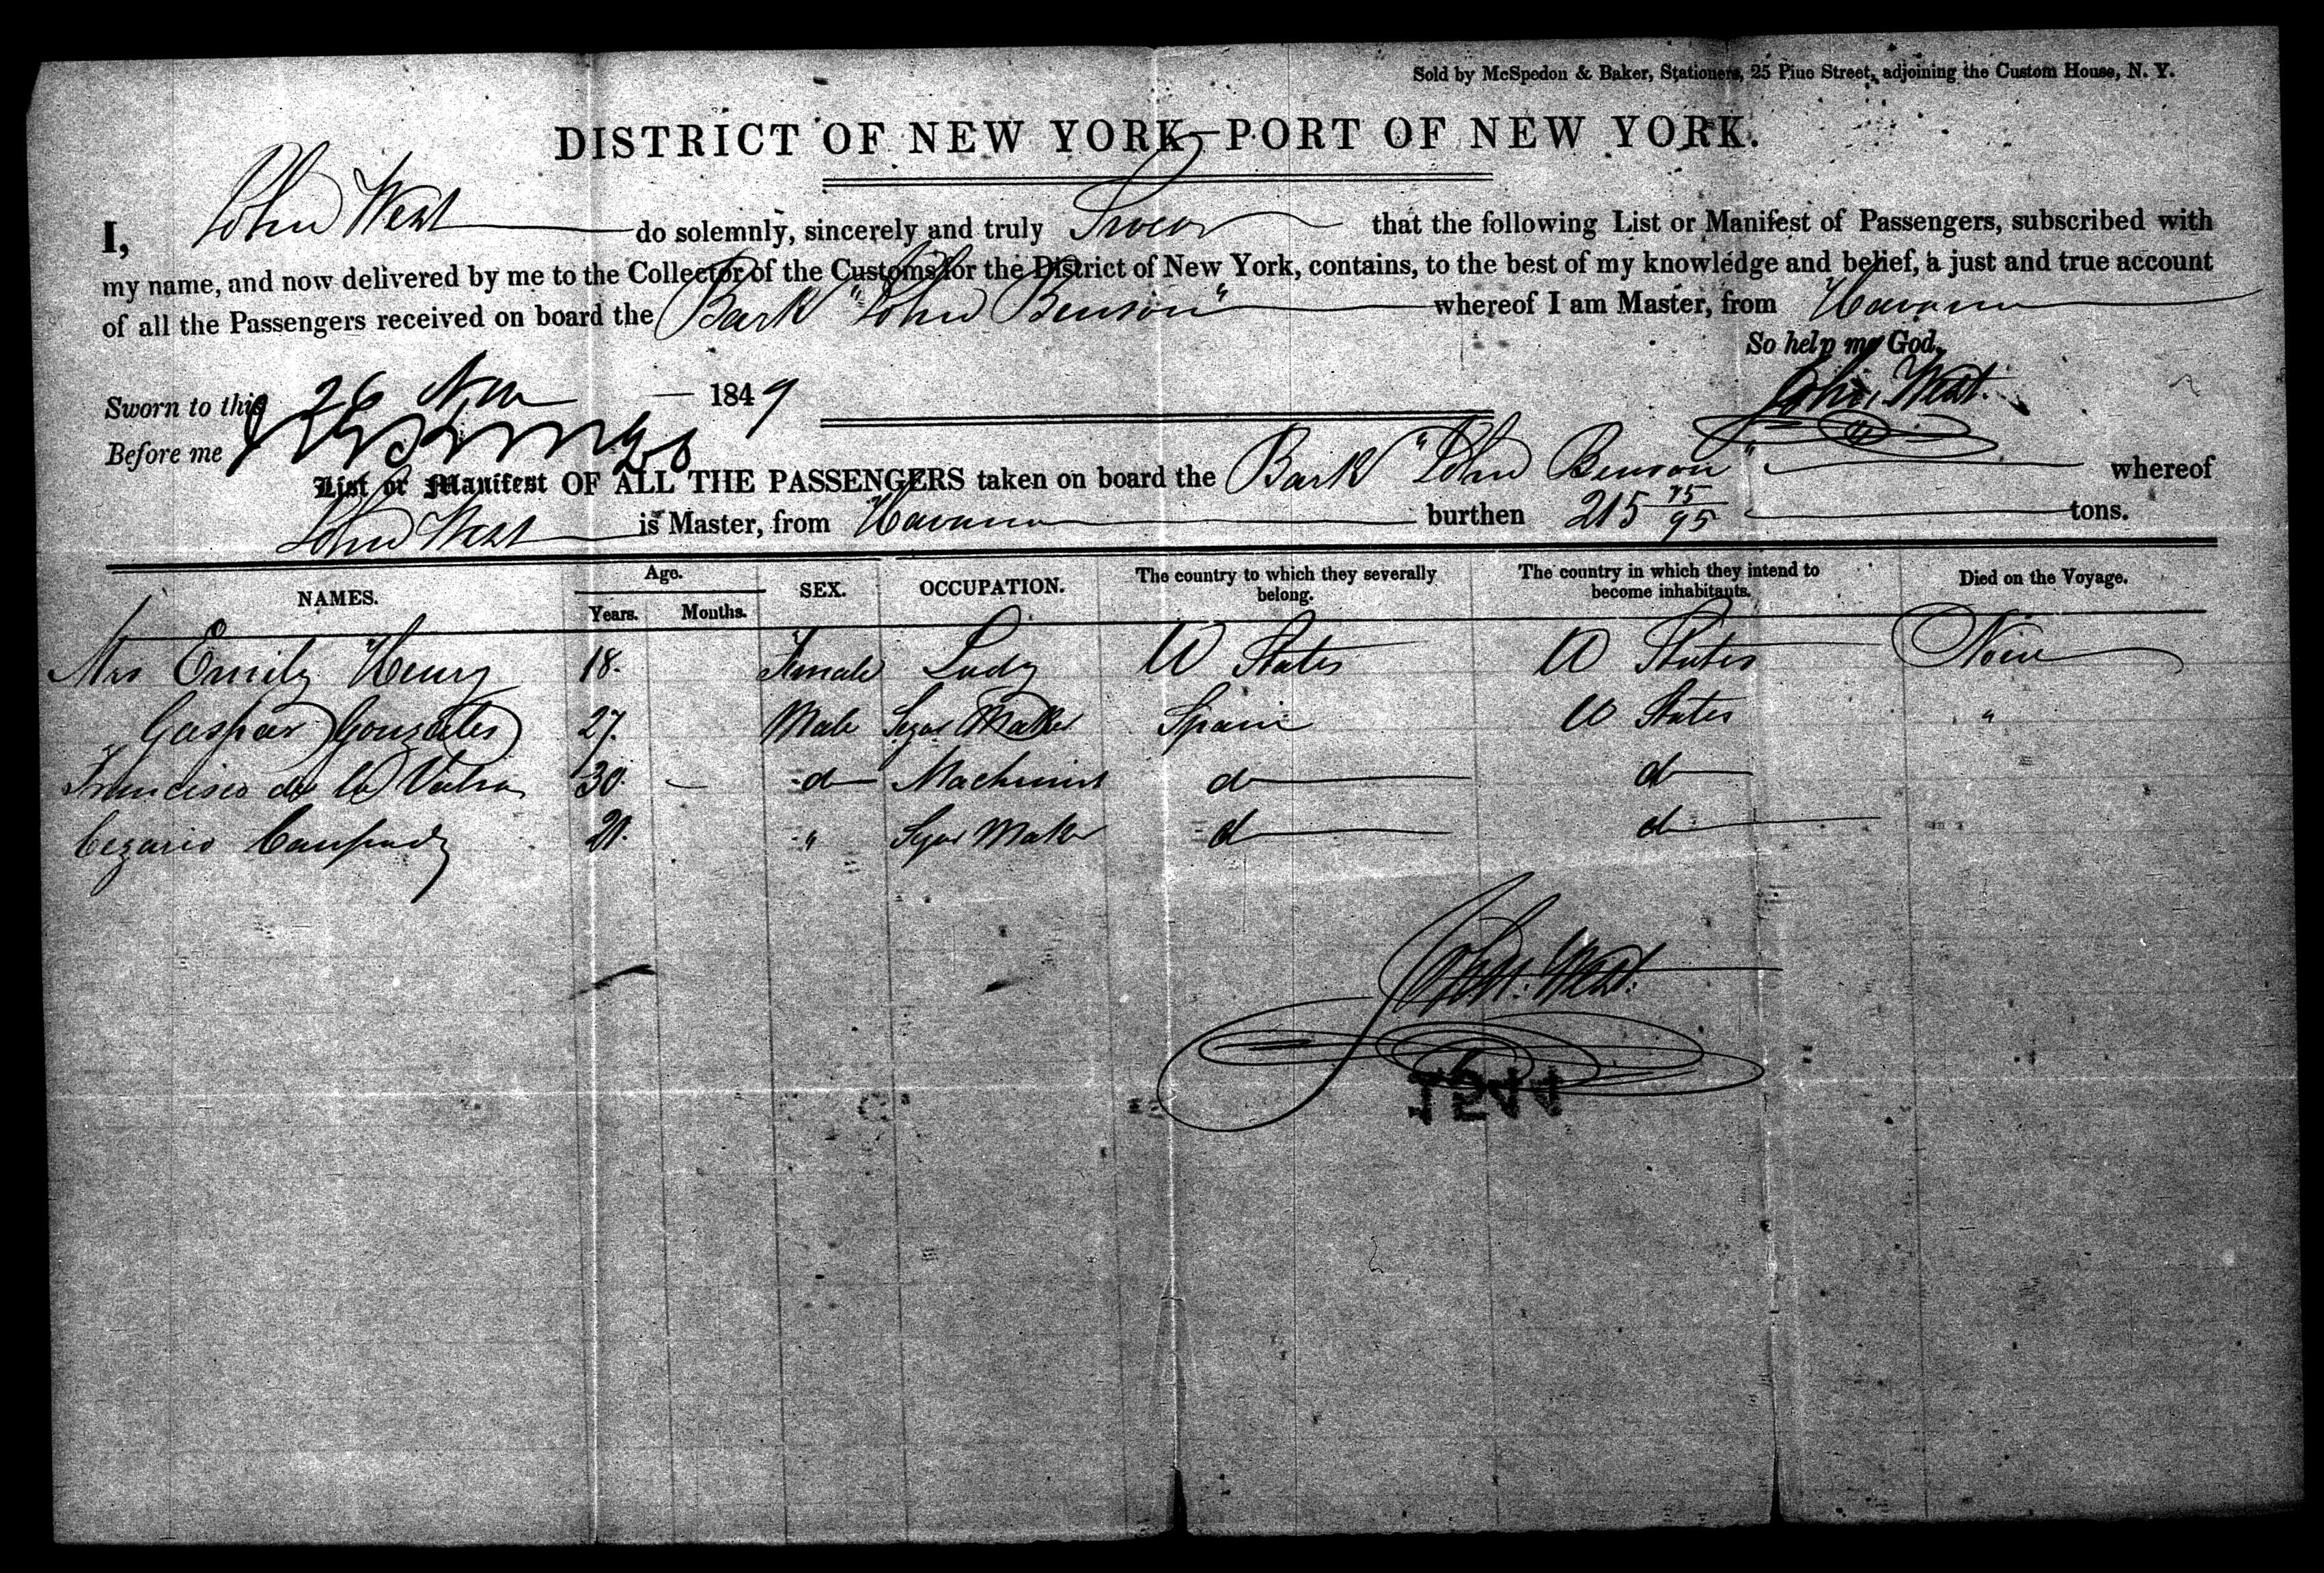 Sold by McSpedon & Baker, Stationers, 25 Pine Street, adjoining the Custom House, N. Y.
DISTRICT OF NEW YORK—PORT OF NEW YORK.
I, John West do solemnly, sincerely and truly Swear that the following List or Manifest of Passengers, subscribed with
my name, and now delivered by me to the Collector of the Customs for the District of New York, contains, to the best of my knowledge and belief, a just and true account
of all the Passengers received on board the Bark "John Benson" whereof I am Master, from Havana
So help me God.
Sworn to this 26 Nov 1849 John West.
Before me
List or Manifest OF ALL THE PASSENGERS taken on board the Bark "John Benson" whereof
John West is Master, from Havana burthen 215 75/95 tons.
NAMES. Age. SEX. OCCUPATION. The country to which they severally belong. The country in which they intend to become inhabitants. Died on the Voyage.
Years. Months.
Mrs Emily Henry 18. Female Lady U States U States None
Gaspar Gonzales 27. Male Segar Maker Spain U States "
Francisco de la 30. - d Machinist d d
Cezario 21. " Segar Maker d d
John West.